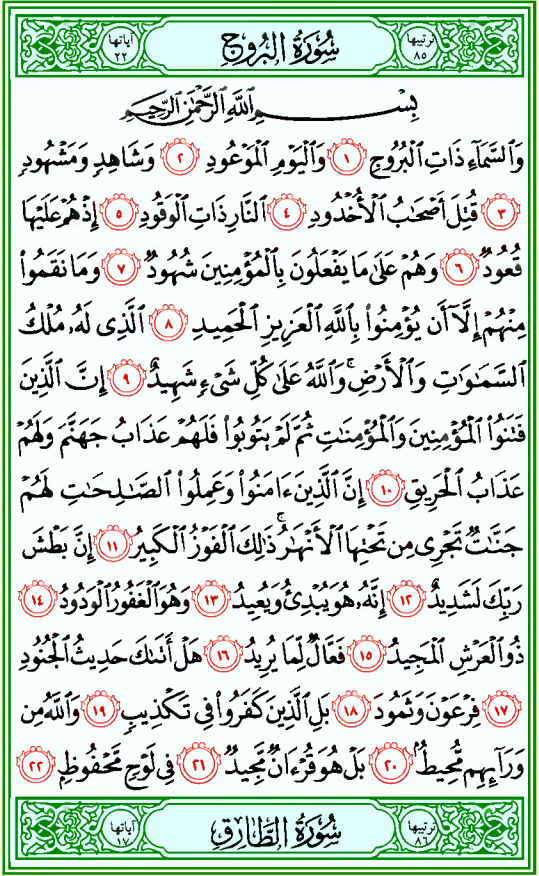 ترتيبها ٨٥ سُورَةُ البُرُوجِ آياتها ٢٢
بِسْمِ اللَّهِ الرَّحْمَٰنِ الرَّحِيمِ
وَالسَّمَاءِ ذَاتِ الْبُرُوجِ ١ وَالْيَوْمِ الْمَوْعُودِ ٢ وَشَاهِدٍ وَمَشْهُودٍ
٣ قُتِلَ أَصْحَٰبُ الْأُخْدُودِ ٤ النَّارِ ذَاتِ الْوَقُودِ ٥ إِذْ هُمْ عَلَيْهَا
قُعُودٌ ٦ وَهُمْ عَلَىٰ مَا يَفْعَلُونَ بِالْمُؤْمِنِينَ شُهُودٌ ٧ وَمَا نَقَمُوا
مِنْهُمْ إِلَّا أَن يُؤْمِنُوا بِاللَّهِ الْعَزِيزِ الْحَمِيدِ ٨ الَّذِي لَهُۥ مُلْكُ
السَّمَٰوَٰتِ وَالْأَرْضِ ۚ وَاللَّهُ عَلَىٰ كُلِّ شَيْءٍ شَهِيدٌ ٩ إِنَّ الَّذِينَ
فَتَنُوا الْمُؤْمِنِينَ وَالْمُؤْمِنَٰتِ ثُمَّ لَمْ يَتُوبُوا فَلَهُمْ عَذَابُ جَهَنَّمَ وَلَهُمْ
عَذَابُ الْحَرِيقِ ١٠ إِنَّ الَّذِينَ ءَامَنُوا وَعَمِلُوا الصَّٰلِحَٰتِ لَهُمْ
جَنَّٰتٌ تَجْرِي مِن تَحْتِهَا الْأَنْهَٰرُ ۚ ذَٰلِكَ الْفَوْزُ الْكَبِيرُ ١١ إِنَّ بَطْشَ
رَبِّكَ لَشَدِيدٌ ١٢ إِنَّهُۥ هُوَ يُبْدِئُ وَيُعِيدُ ١٣ وَهُوَ الْغَفُورُ الْوَدُودُ ١٤
ذُو الْعَرْشِ الْمَجِيدُ ١٥ فَعَّالٌ لِّمَا يُرِيدُ ١٦ هَلْ أَتَىٰكَ حَدِيثُ الْجُنُودِ
١٧ فِرْعَوْنَ وَثَمُودَ ١٨ بَلِ الَّذِينَ كَفَرُوا فِي تَكْذِيبٍ ١٩ وَاللَّهُ مِن
وَرَآئِهِم مُّحِيطٌ ٢٠ بَلْ هُوَ قُرْءَانٌ مَّجِيدٌ ٢١ فِي لَوْحٍ مَّحْفُوظٍ ٢٢
ترتيبها ٨٦ سُورَةُ الطَّارِقِ آياتها ١٧